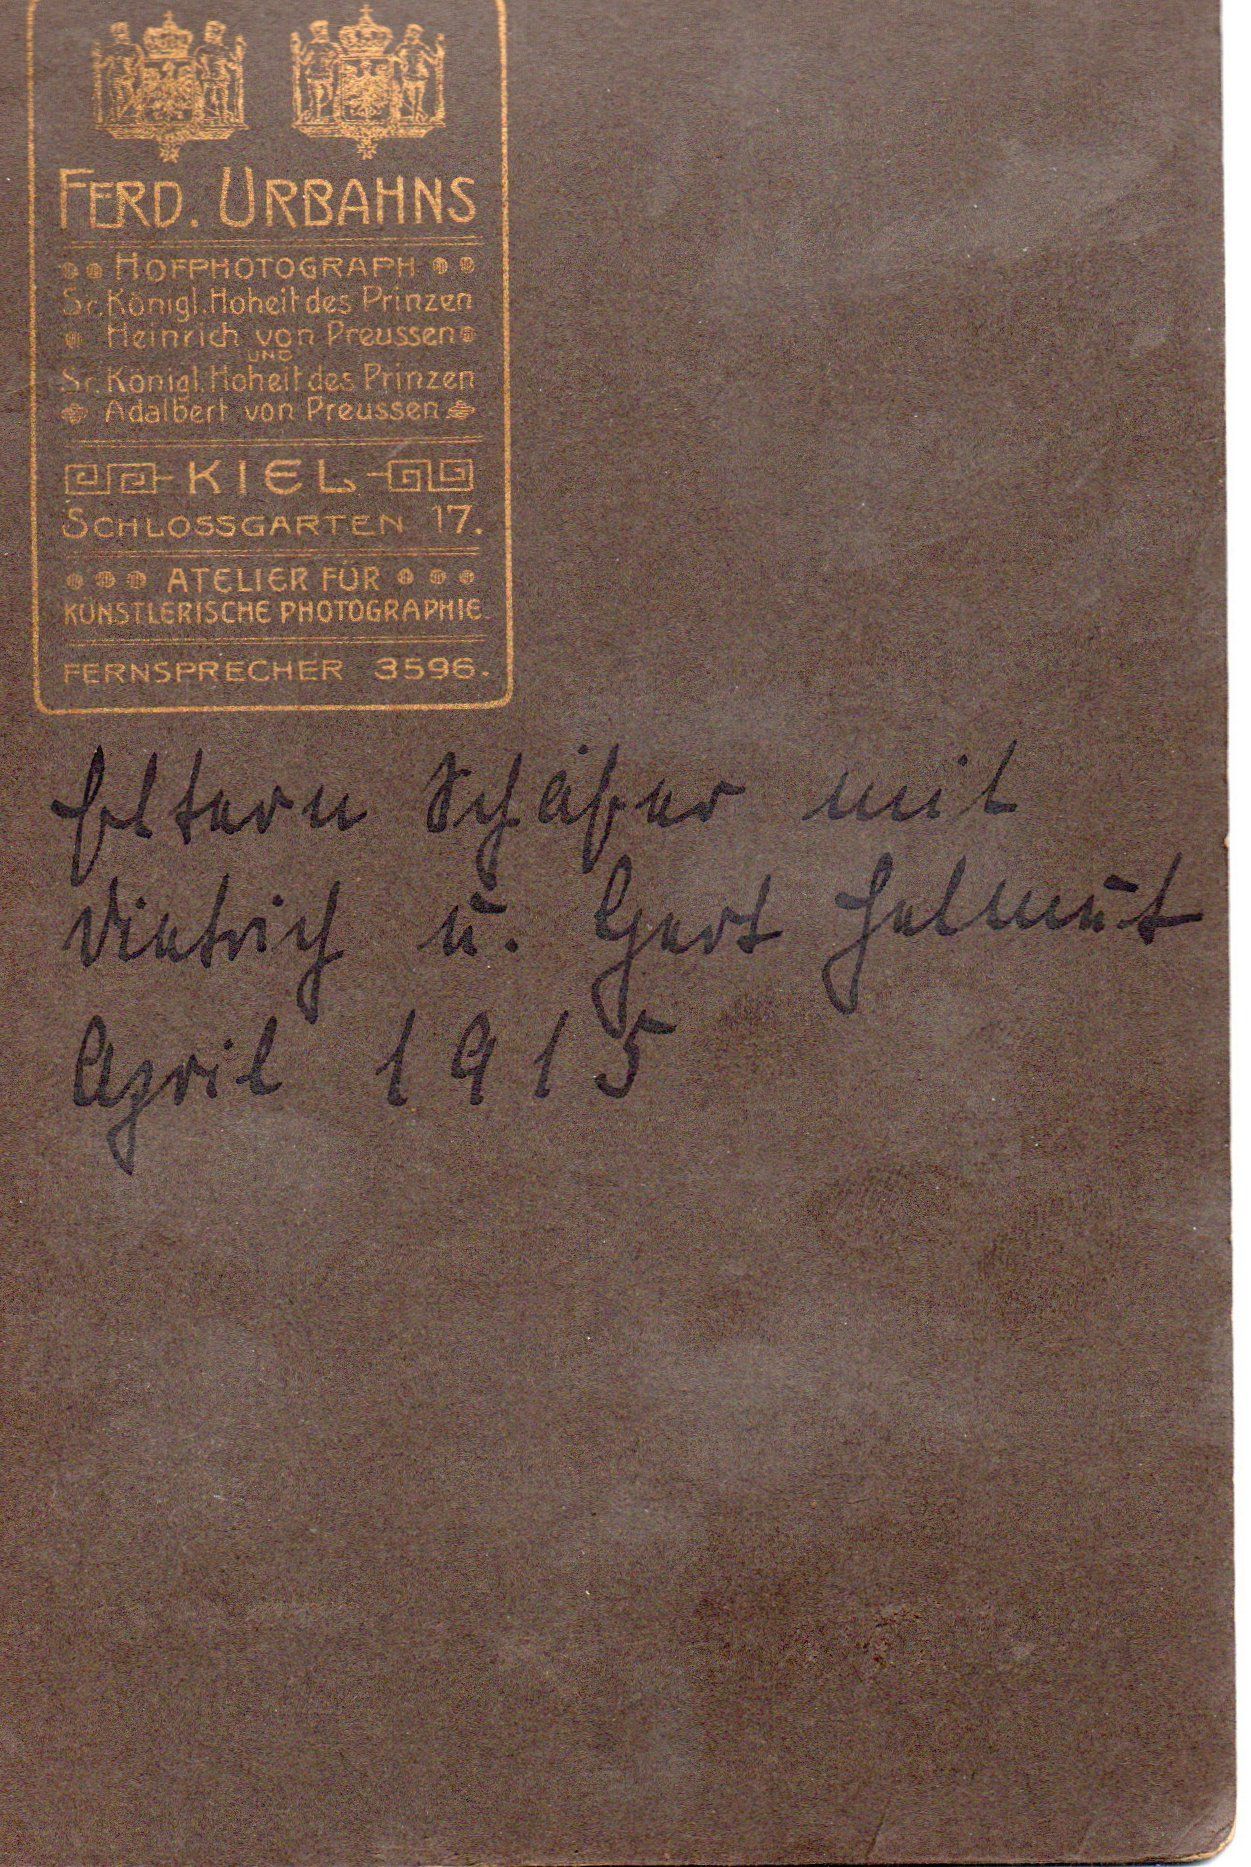 FERD. URBAHNS
HOFPHOTOGRAPH
Sr. Königl. Hoheit des Prinzen
Heinrich von Preussen
UND
Sr. Königl. Hoheit des Prinzen
Adalbert von Preussen
KIEL
SCHLOSSGARTEN 17.
ATELIER FÜR
KÜNSTLERISCHE PHOTOGRAPHIE
FERNSPRECHER 3596.
Eltern Schäfer mit
Dietrich u. Gert Helmut
April 1915